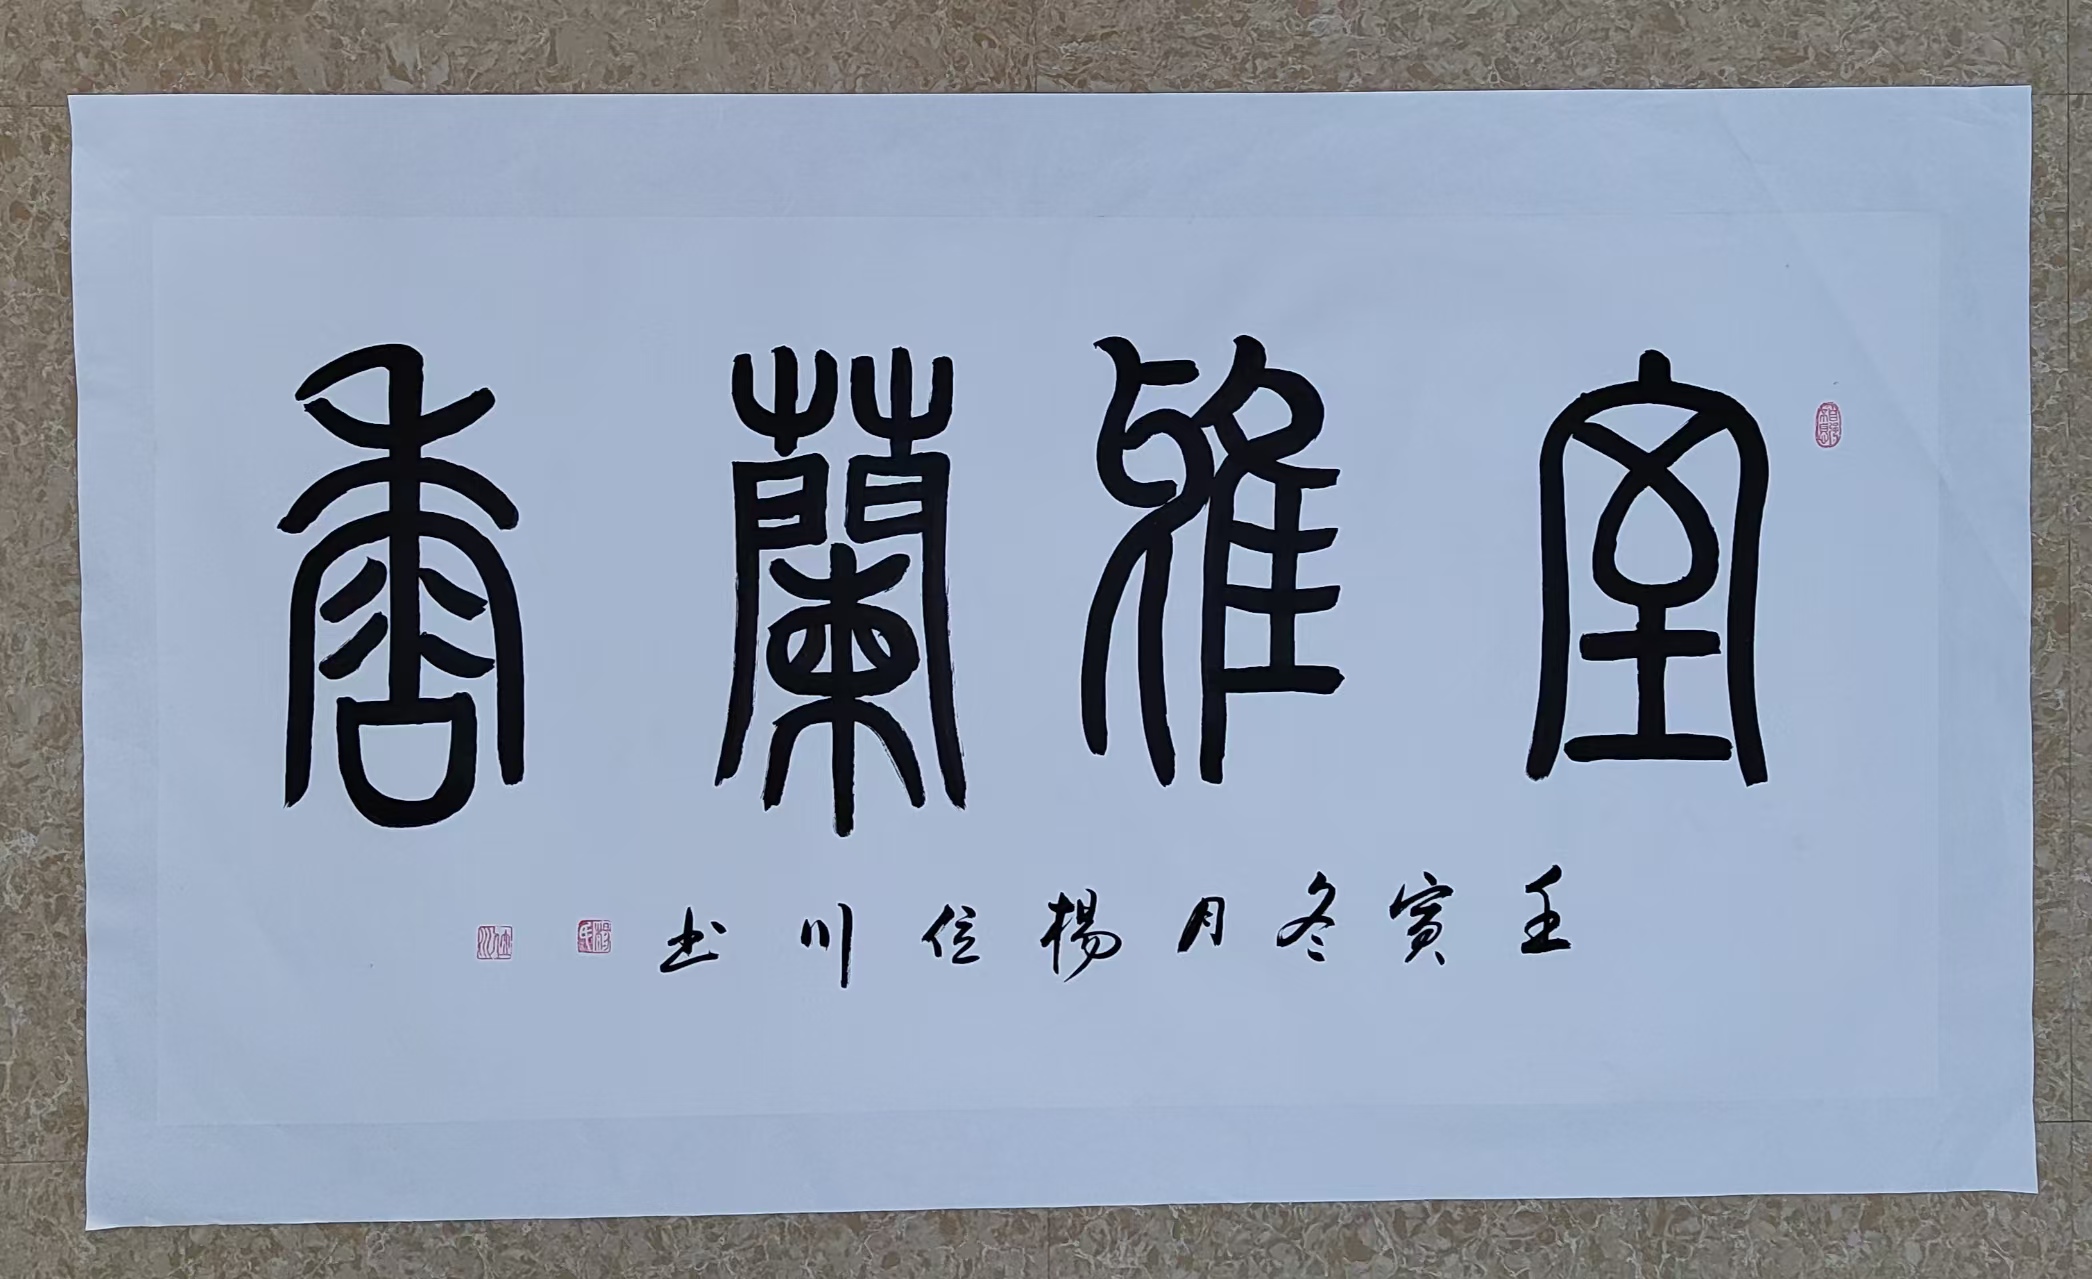 室雅蘭香
壬寅冬月楊位川书